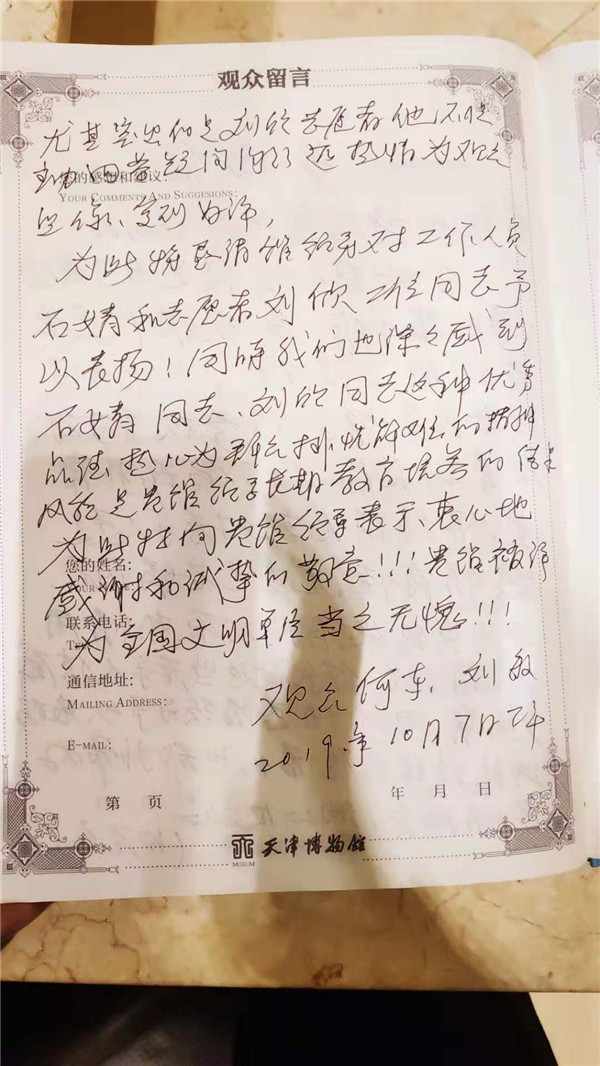 观众留言
尤其突出的是刘欣志愿者他不但
您的感想和建议
YOUR COMMENTS AND SUGGESIONS:
热情为观众
受到好评,
为此特恳请馆领导对工作人员
石婧和志愿者刘欣二位同志予
以表扬!同时我们也深深感到
石婧同志、刘欣同志这种优秀
品德热心为群众排忧解难的精神
风貌是贵馆领导长期教育培养的结果
为此特向贵馆领导表示衷心地
您的姓名:
感谢和诚挚的敬意!!!贵馆被评
联系电话:
为全国文明单位当之无愧!!!
通信地址:
MAILING ADDRESS:
观众何东、刘敏
E-MAIL:
2019年10月7日下午
第 页
年 月 日
MUSEUM
天津博物馆